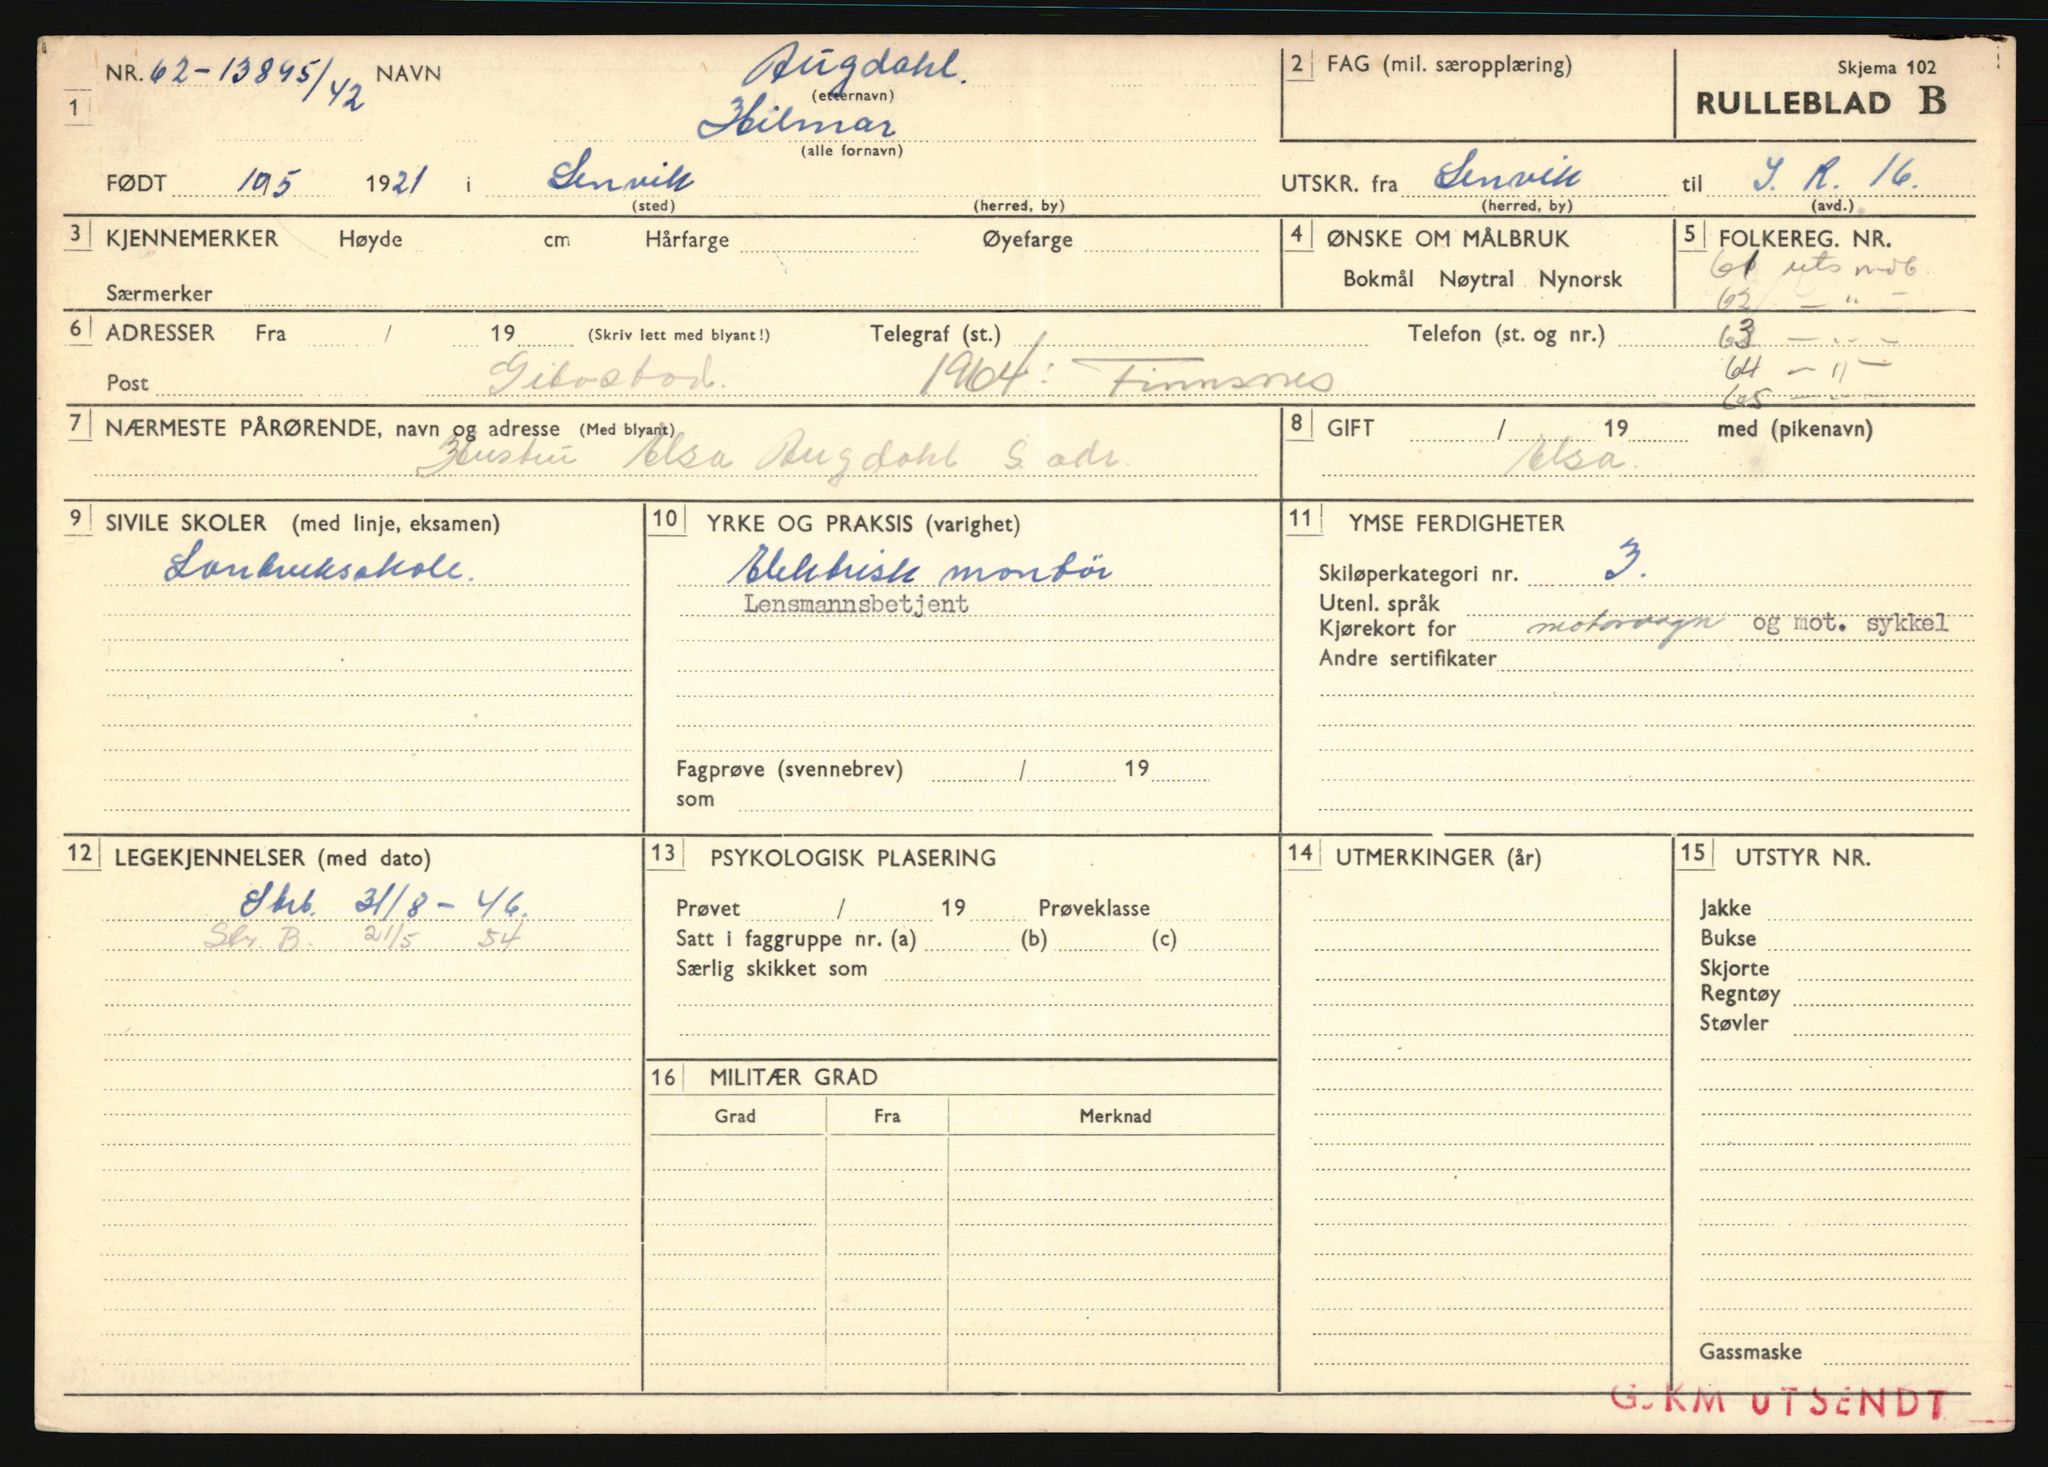 NR. 62-13895/42 NAVN Augdahl.
(etternavn)
1
Hilmar
(alle fornavn)
FØDT 10/5 1921 i Lenvik
(sted) (herred, by)
2 FAG (mil. særopplæring)
Skjema 102
RULLEBLAD B
UTSKR. fra Lenvik til I. R. 16.
(herred, by) (avd.)
3 KJENNEMERKER Høyde cm Hårfarge Øyefarge
Særmerker
4 ØNSKE OM MÅLBRUK
Bokmål Nøytral Nynorsk
5 FOLKEREG. NR.
61 uts mob.
62 — " —
63 — " —
64 — " —
65 — " —
6 ADRESSER Fra / 19 (Skriv lett med blyant!) Telegraf (st.) Telefon (st. og nr.)
Post Gibostad. 1964: Finnsnes
7 NÆRMESTE PÅRØRENDE, navn og adresse (Med blyant)
Hustru Elsa Augdahl S. adr.
8 GIFT / 19 med (pikenavn)
Elsa.
9 SIVILE SKOLER (med linje, eksamen)
Lanbruksskole.
10 YRKE OG PRAKSIS (varighet)
Elektrisk montör
Lensmannsbetjent
Fagprøve (svennebrev) / 19
som
11 YMSE FERDIGHETER
Skiløperkategori nr. 3.
Utenl. språk
Kjørekort for motorvogn og mot. sykkel
Andre sertifikater
12 LEGEKJENNELSER (med dato)
Strb. 31/8 - 46.
Str. B. 21/5 54
13 PSYKOLOGISK PLASERING
Prøvet / 19 Prøveklasse
Satt i faggruppe nr. (a) (b) (c)
Særlig skikket som
14 UTMERKINGER (år)
15 UTSTYR NR.
Jakke
Bukse
Skjorte
Regntøy
Støvler
Gassmaske
16 MILITÆR GRAD
Grad Fra Merknad
G.KM UTSENDT